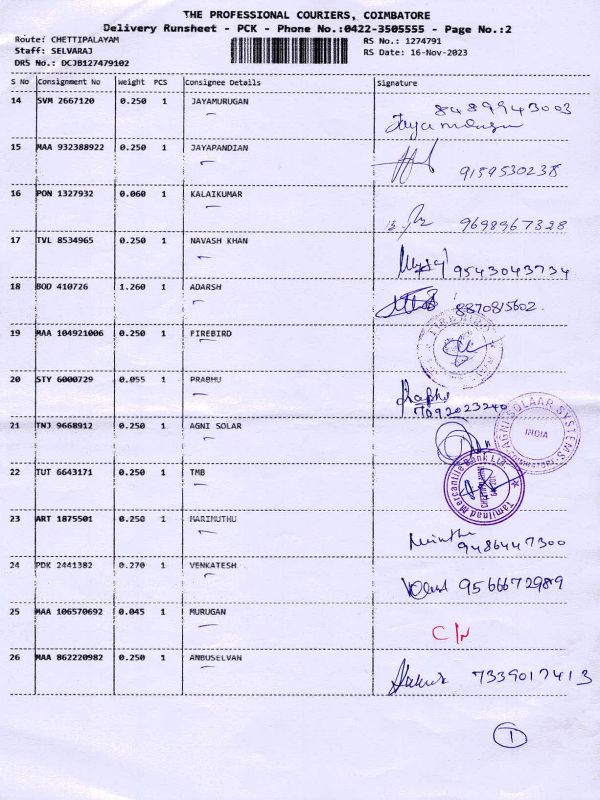 THE PROFESSIONAL COURIERS, COIMBATORE
Delivery Runsheet - PCK - Phone No.:0422-3505555 - Page No.:2
Route: CHETTIPALAYAM
Staff: SELVARAJ
DRS No.: DCJB127479102
RS No.: 1274791
RS Date: 16-Nov-2023
S No Consignment No Weight PCS Consignee Details Signature
14 SVM 2667120 0.250 1 JAYAMURUGAN 8489943003
Jayamurugan
15 MAA 932388922 0.250 1 JAYAPANDIAN 9159530238
16 PON 1327932 0.060 1 KALAIKUMAR 9698967328
17 TVL 8534965 0.250 1 NAVASH KHAN 9543043734
18 BOD 410726 1.260 1 ADARSH 8870815602
19 MAA 104921006 0.250 1 FIREBIRD
20 STY 6000729 0.055 1 PRABHU
7092023240
21 TNJ 9668912 0.250 1 AGNI SOLAR
AGNI SOLAAR SYSTEMS
INDIA
COIMBATORE
22 TUT 6643171 0.250 1 TMB
Tamilnad Mercantile Bank Ltd
23 ART 1875501 0.250 1 MARIMUTHU
9486447300
24 PDK 2441382 0.270 1 VENKATESH 9566672989
25 MAA 106570692 0.045 1 MURUGAN
26 MAA 862220982 0.250 1 ANBUSELVAN 7339017413
1